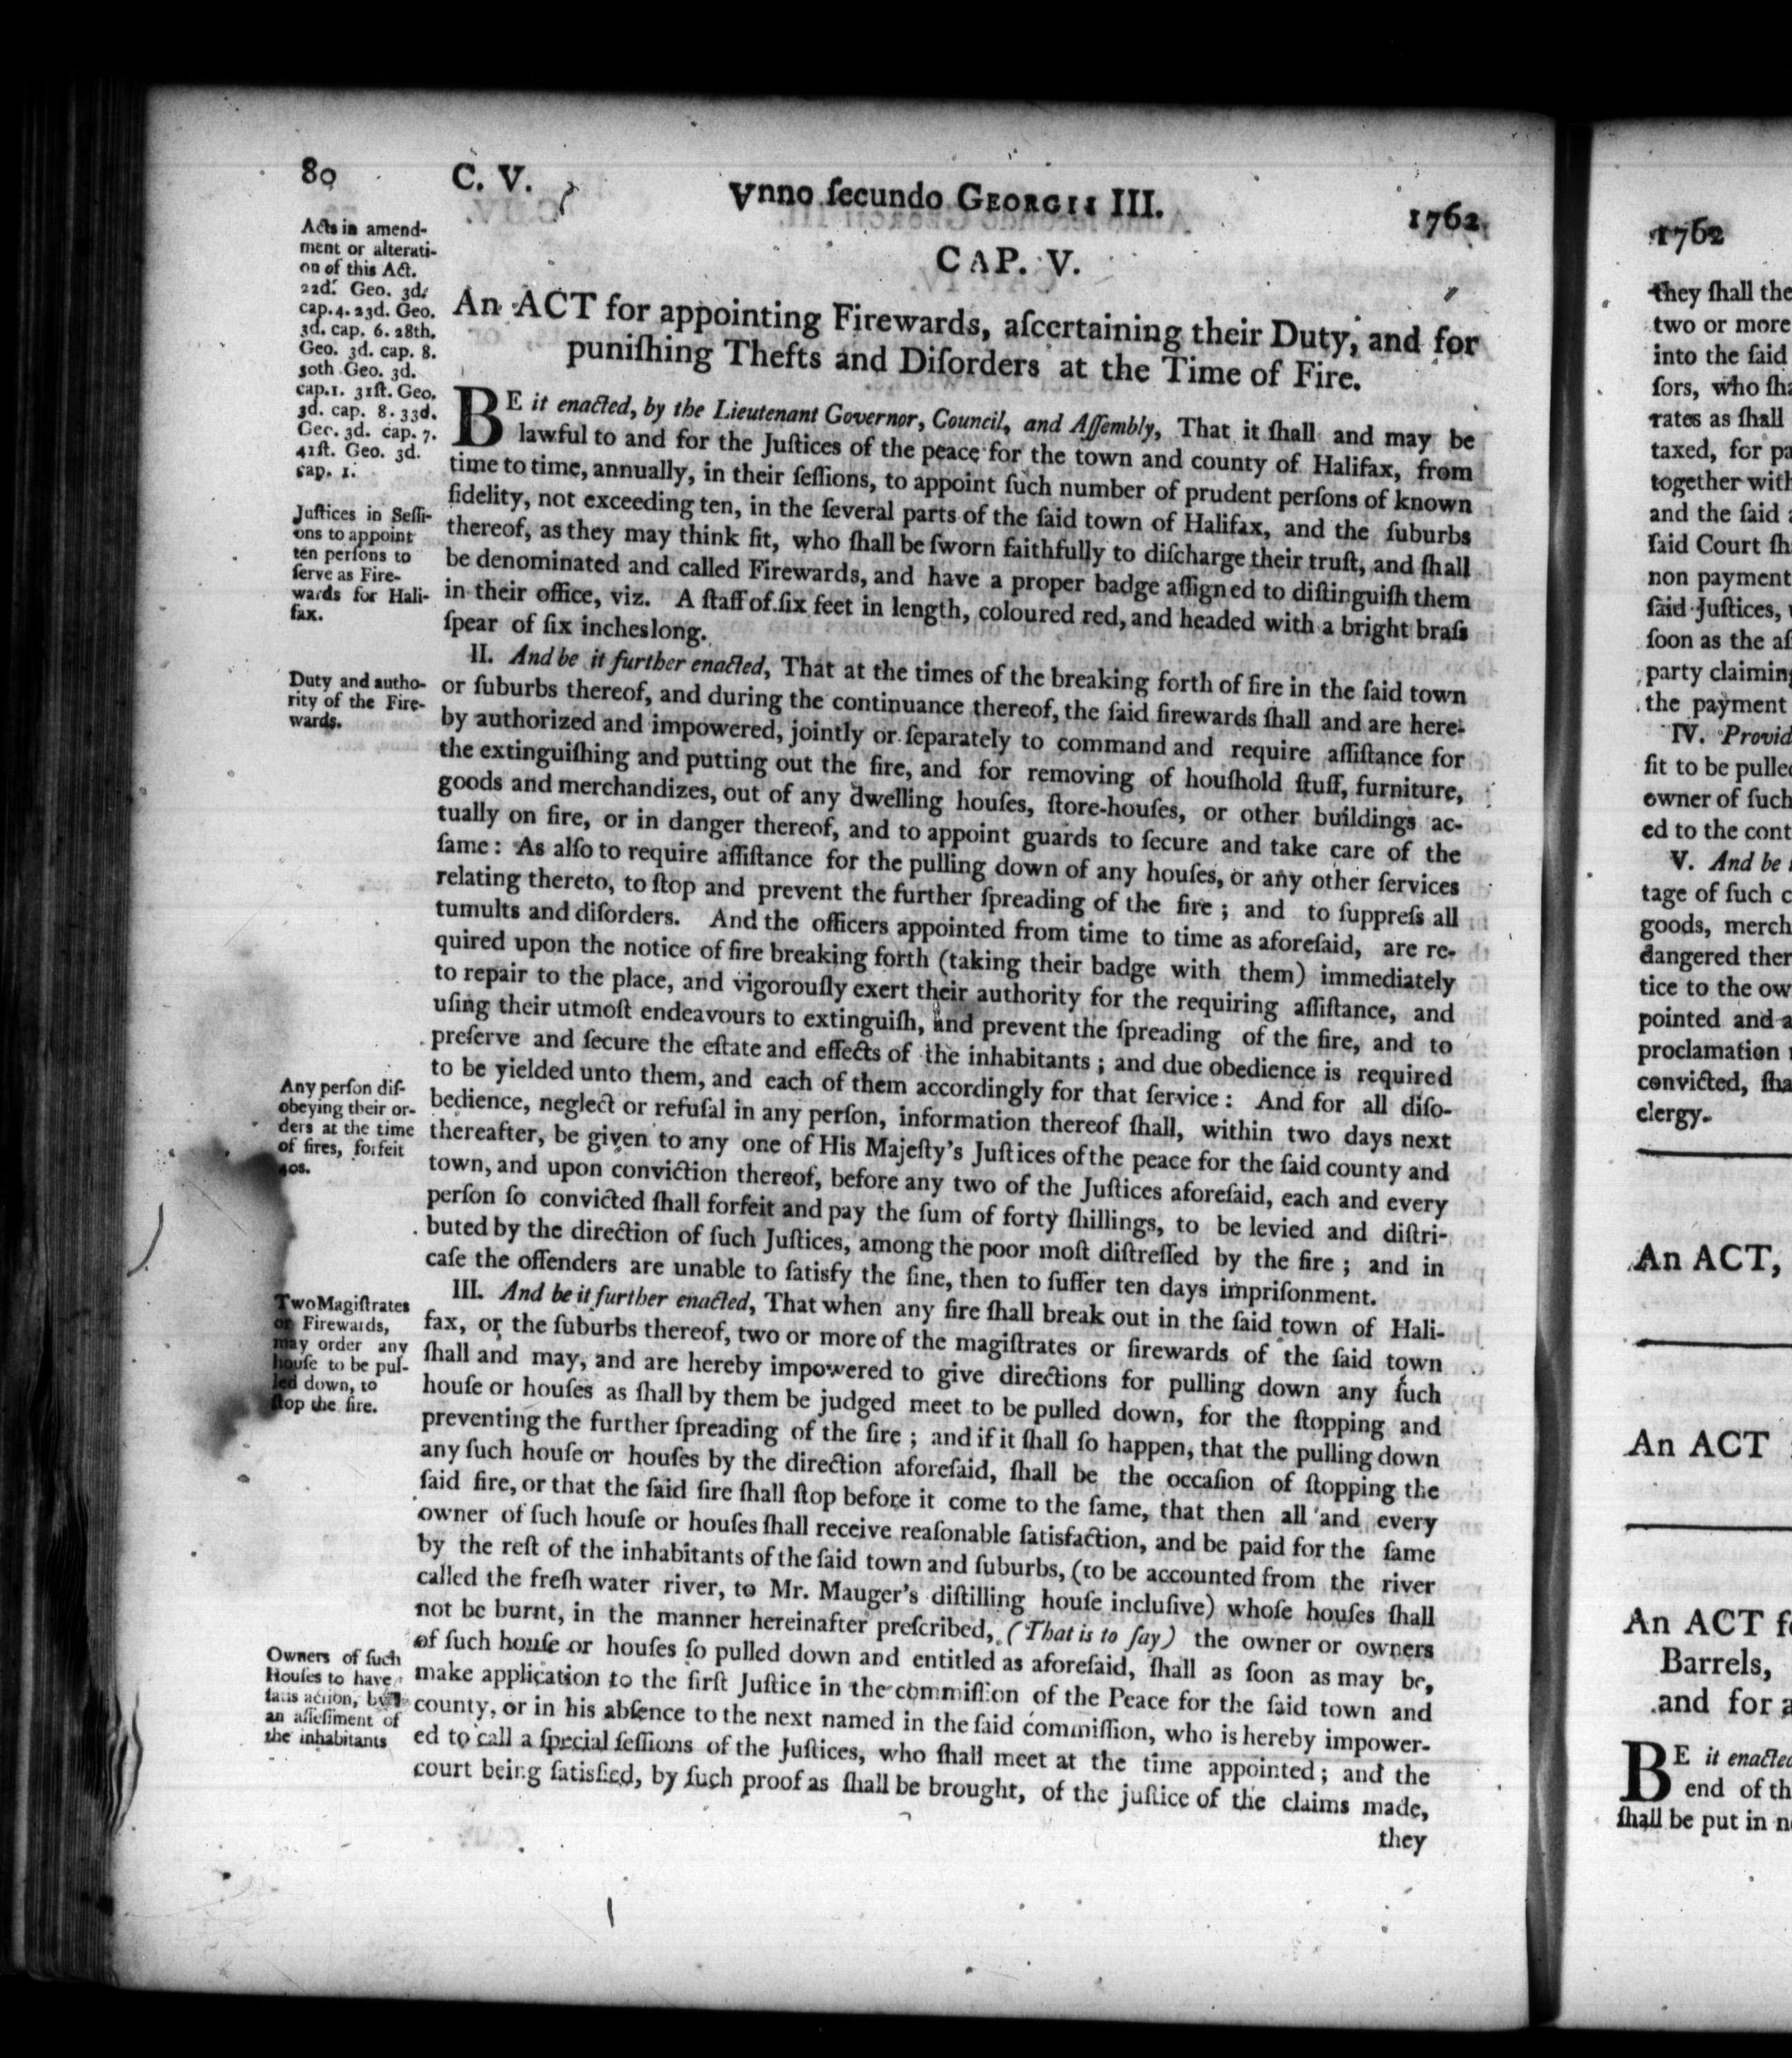 80
C. V.
Ɐnno ſecundo GEORGII III.
1762
Acts in amend-
ment or alterati-
on of this Act.
22d. Geo. 3d.
cap. 4. 23d. Geo.
3d. cap. 6. 28th.
Geo. 3d. cap. 8.
30th Geo. 3d.
cap. 1. 31ſt. Geo.
3d. cap. 8. 33d.
Geo. 3d. cap. 7.
41ſt. Geo. 3d.
cap. 1.
Juſtices in Seſſi-
ons to appoint
ten perſons to
ſerve as Fire-
wards for Hali-
fax.
Duty and autho-
rity of the Fire-
wards.
Any perſon diſ-
obeying their or-
ders at the time
of fires, forfeit
40s.
Two Magiſtrates
or Firewards,
may order any
houſe to be pul-
led down, to
ſtop the fire.
Owners of ſuch
Houſes to have
an aſſeſſment of
the inhabitants
CAP. V.
An ACT for appointing Firewards, aſcertaining their Duty, and for
puniſhing Thefts and Diſorders at the Time of Fire.
BE it enacted, by the Lieutenant Governor, Council, and Aſſembly, That it ſhall and may be
lawful to and for the Juſtices of the peace for the town and county of Halifax, from
time to time, annually, in their ſeſſions, to appoint ſuch number of prudent perſons of known
fidelity, not exceeding ten, in the ſeveral parts of the ſaid town of Halifax, and the ſuburbs
thereof, as they may think fit, who ſhall be ſworn faithfully to diſcharge their truſt, and ſhall
be denominated and called Firewards, and have a proper badge aſſigned to diſtinguiſh them
in their office, viz. A ſtaff of ſix feet in length, coloured red, and headed with a bright braſs
ſpear of ſix inches long.
II. And be it further enacted, That at the times of the breaking forth of fire in the ſaid town
or ſuburbs thereof, and during the continuance thereof, the ſaid firewards ſhall and are here-
by authorized and impowered, jointly or ſeparately to command and require aſſiſtance for
the extinguiſhing and putting out the fire, and for removing of houſhold ſtuff, furniture,
goods and merchandizes, out of any dwelling houſes, ſtore-houſes, or other buildings ac-
tually on fire, or in danger thereof, and to appoint guards to ſecure and take care of the
ſame: As alſo to require aſſiſtance for the pulling down of any houſes, or any other ſervices
relating thereto, to ſtop and prevent the further ſpreading of the fire; and to ſuppreſs all
tumults and diſorders. And the officers appointed from time to time as aforeſaid, are re-
quired upon the notice of fire breaking forth (taking their badge with them) immediately
to repair to the place, and vigorouſly exert their authority for the requiring aſſiſtance, and
uſing their utmoſt endeavours to extinguiſh, and prevent the ſpreading of the fire, and to
preſerve and ſecure the eſtate and effects of the inhabitants; and due obedience is required
to be yielded unto them, and each of them accordingly for that ſervice: And for all diſo-
bedience, neglect or refuſal in any perſon, information thereof ſhall, within two days next
thereafter, be given to any one of His Majeſty's Juſtices of the peace for the ſaid county and
town, and upon conviction thereof, before any two of the Juſtices aforeſaid, each and every
perſon ſo convicted ſhall forfeit and pay the ſum of forty ſhillings, to be levied and diſtri-
buted by the direction of ſuch Juſtices, among the poor moſt diſtreſſed by the fire; and in
caſe the offenders are unable to ſatisfy the fine, then to ſuffer ten days impriſonment.
III. And be it further enacted, That when any fire ſhall break out in the ſaid town of Hali-
fax, or the ſuburbs thereof, two or more of the magiſtrates or firewards of the ſaid town
ſhall and may, and are hereby impowered to give directions for pulling down any ſuch
houſe or houſes as ſhall by them be judged meet to be pulled down, for the ſtopping and
preventing the further ſpreading of the fire; and if it ſhall ſo happen, that the pulling down
any ſuch houſe or houſes by the direction aforeſaid, ſhall be the occaſion of ſtopping the
ſaid fire, or that the ſaid fire ſhall ſtop before it come to the ſame, that then all and every
owner of ſuch houſe or houſes ſhall receive reaſonable ſatisfaction, and be paid for the ſame
by the reſt of the inhabitants of the ſaid town and ſuburbs, (to be accounted from the river
called the freſh water river, to Mr. Mauger's diſtilling houſe incluſive) whoſe houſes ſhall
not be burnt, in the manner hereinafter preſcribed, (That is to ſay) the owner or owners
of ſuch houſe or houſes ſo pulled down and entitled as aforeſaid, ſhall as ſoon as may be,
make application to the firſt Juſtice in the commiſſion of the Peace for the ſaid town and
county, or in his abſence to the next named in the ſaid commiſſion, who is hereby impower-
ed to call a ſpecial ſeſſions of the Juſtices, who ſhall meet at the time appointed; and the
court being ſatisfied, by ſuch proof as ſhall be brought, of the juſtice of the claims made,
they
1762
they ſhall the
two or more
into the ſaid
ſors, who ſha
rates as ſhall
taxed, for pa
together with
and the ſaid a
ſaid Court ſh
non payment
ſaid Juſtices,
ſoon as the aſ
party claiming
the payment
IV. Provid
fit to be pulled
owner of ſuch
ed to the cont
V. And be
tage of ſuch c
goods, merch
dangered ther
tice to the ow
pointed and a
proclamation
convicted, ſha
clergy.
An ACT,
An ACT
An ACT f
Barrels,
and for a
BE it enacted
end of th
ſhall be put in n